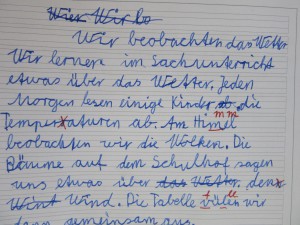 Wier Wir be
Wir beobachten das Wetter
Wir lernen im Sachunterricht
etwas über das Wetter. Jeden
Morgen lesen einige Kinder ab die
Temperxaturen ab. Am Himel
mm
beobachten wir die Wolken. Die
Bäume auf dem Schulhof sagen
uns etwas über das Wetter. den
Wint Wind. Die Tabelle wir
t ll
dann gemeinsam aus.